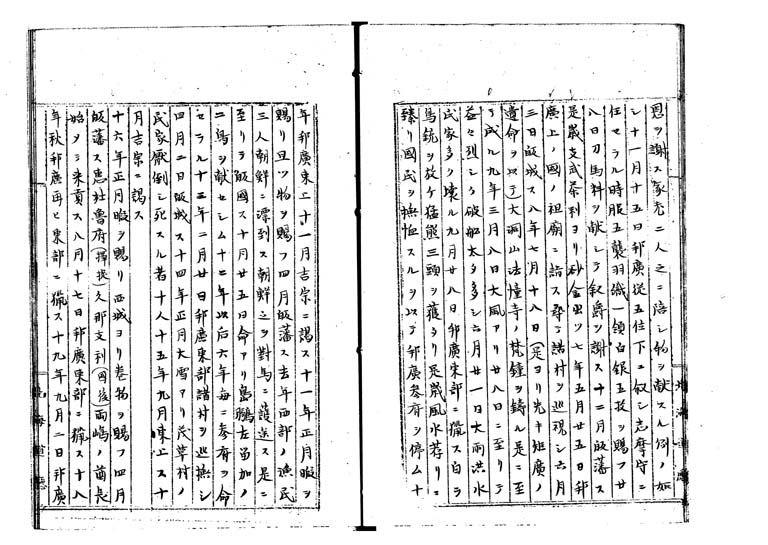 恩ヲ謝ス家老二人之ニ陪シ物ヲ献スル例ノ如
シ十一月十五日邦廣從五位下ニ叙シ志摩守ニ
任セラル時服五襲羽織一領白銀五枚ヲ賜フ廿
八日刀馬料ヲ献シテ叙爵ヲ謝ス十二月皈藩ス
是歳支武茶利ヨリ砂金出ツ七年五月廿五日邦
廣上ノ國ノ祖廟ニ詣ス尋テ諸村ヲ巡視シ六月
三日皈城ス八年七月十八日(是ヨリ先キ矩廣ノ
遺命ヲ以テ)大洞山法幢寺ノ梵鐘ヲ鋳ル是ニ至
テ成ル九年三月八日大風アリ廿八日ニ至リテ
益々烈シク破船太タ多シ六月廿一日大雨洪水
民家多ク壊ル九月廿八日邦廣東部ニ獵ス自ラ
鳥銃ヲ放ケ猛熊三頭ヲ獲タリ是歳風水荐リニ
臻リ國民ヲ撫恤スルヲ以テ邦廣參府ヲ停ム十
年邦廣東上十一月吉宗ニ謁ス十一年正月暇ヲ
賜リ且ツ物ヲ賜フ四月皈藩ス去年西部ノ漁民
三人朝鮮ニ漂到ス朝鮮之ヲ對馬ニ護送ス是ニ
至リテ皈國ス十月廿五日命アリ島鵬左留加ノ
二鳥ヲ献セシム十二年以后六年毎ニ參府ヲ命
セラル十三年二月廿日邦廣東部諸村ヲ巡撫シ
四月二日皈城ス十四年正月大雪アリ茂草村ノ
民家厭倒シ死スル者十人十五年九月東上ス十
月吉宗ニ謁ス
十六年正月暇ヲ賜リ西城ヨリ巻物ヲ賜フ四月
皈藩ス惠社魯府(擇捉)久那支利(國後)兩嶋ノ酋長
始メテ来貢ス八月十七日邦廣東部ニ獵ス十八
年秋邦廣再ヒ東部ニ獵ス十九年九月二日邦廣
北海道廳